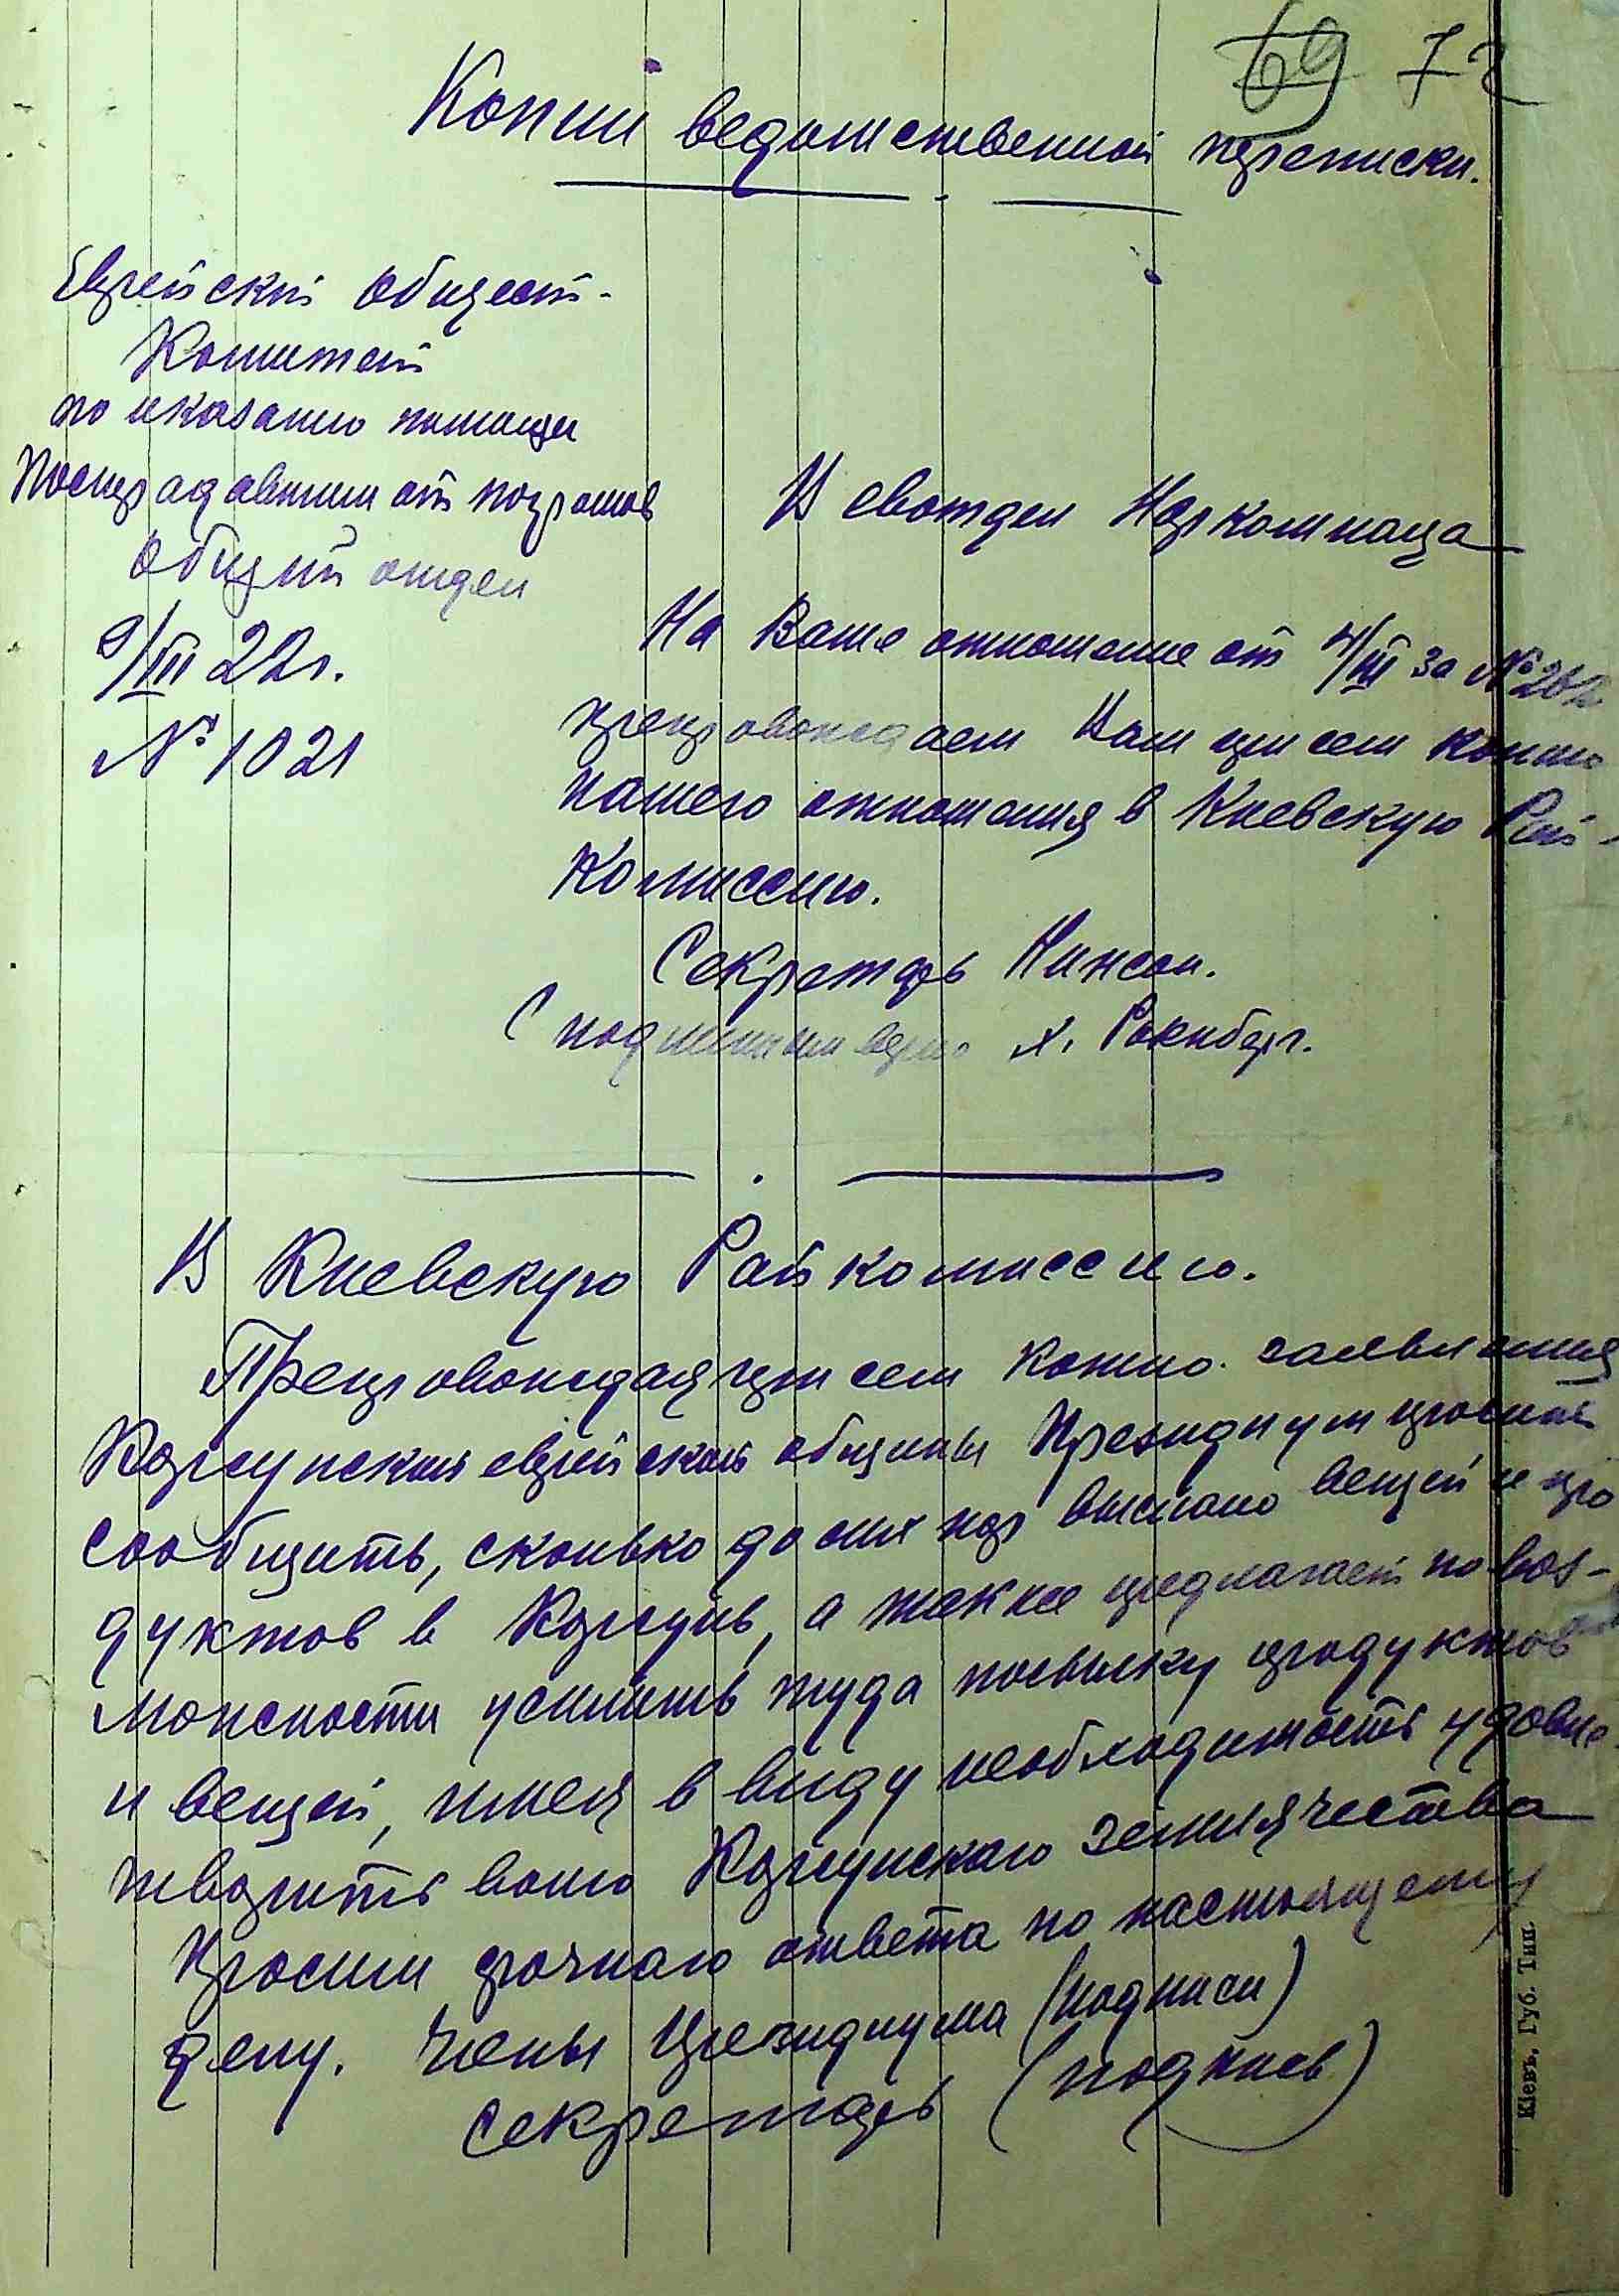 69 72
Копии ведомственной переписки.
Еврейский Общест-
Комитет
по оказанию помощи
Пострадавшим от погромов
Общий отдел
9/III 22г.
№ 1021
В евотдел Наркомнаца
На Ваше отношение от 4/III за №
препровождаем Вам при сем копию
нашего отношения в Киевскую Рай-
Комиссию.
Секретарь
С подлинным верно
В Киевскую Райкомиссию.
Препровождая при сем копию заявления
Корсунской еврейской общины Президиум просит
сообщить, сколько до сих пор выслано вещей и про
дуктов в Корсунь, а также предлагает по воз-
можности усилить туда посылку продуктов
и вещей, имея в виду необходимость удовле
творить волю Корсунского землячества
Просим срочного ответа по настоящему
делу. Члены Президиума (подписи)
секретарь (подпись)
Кіевъ, Губ. Тип.